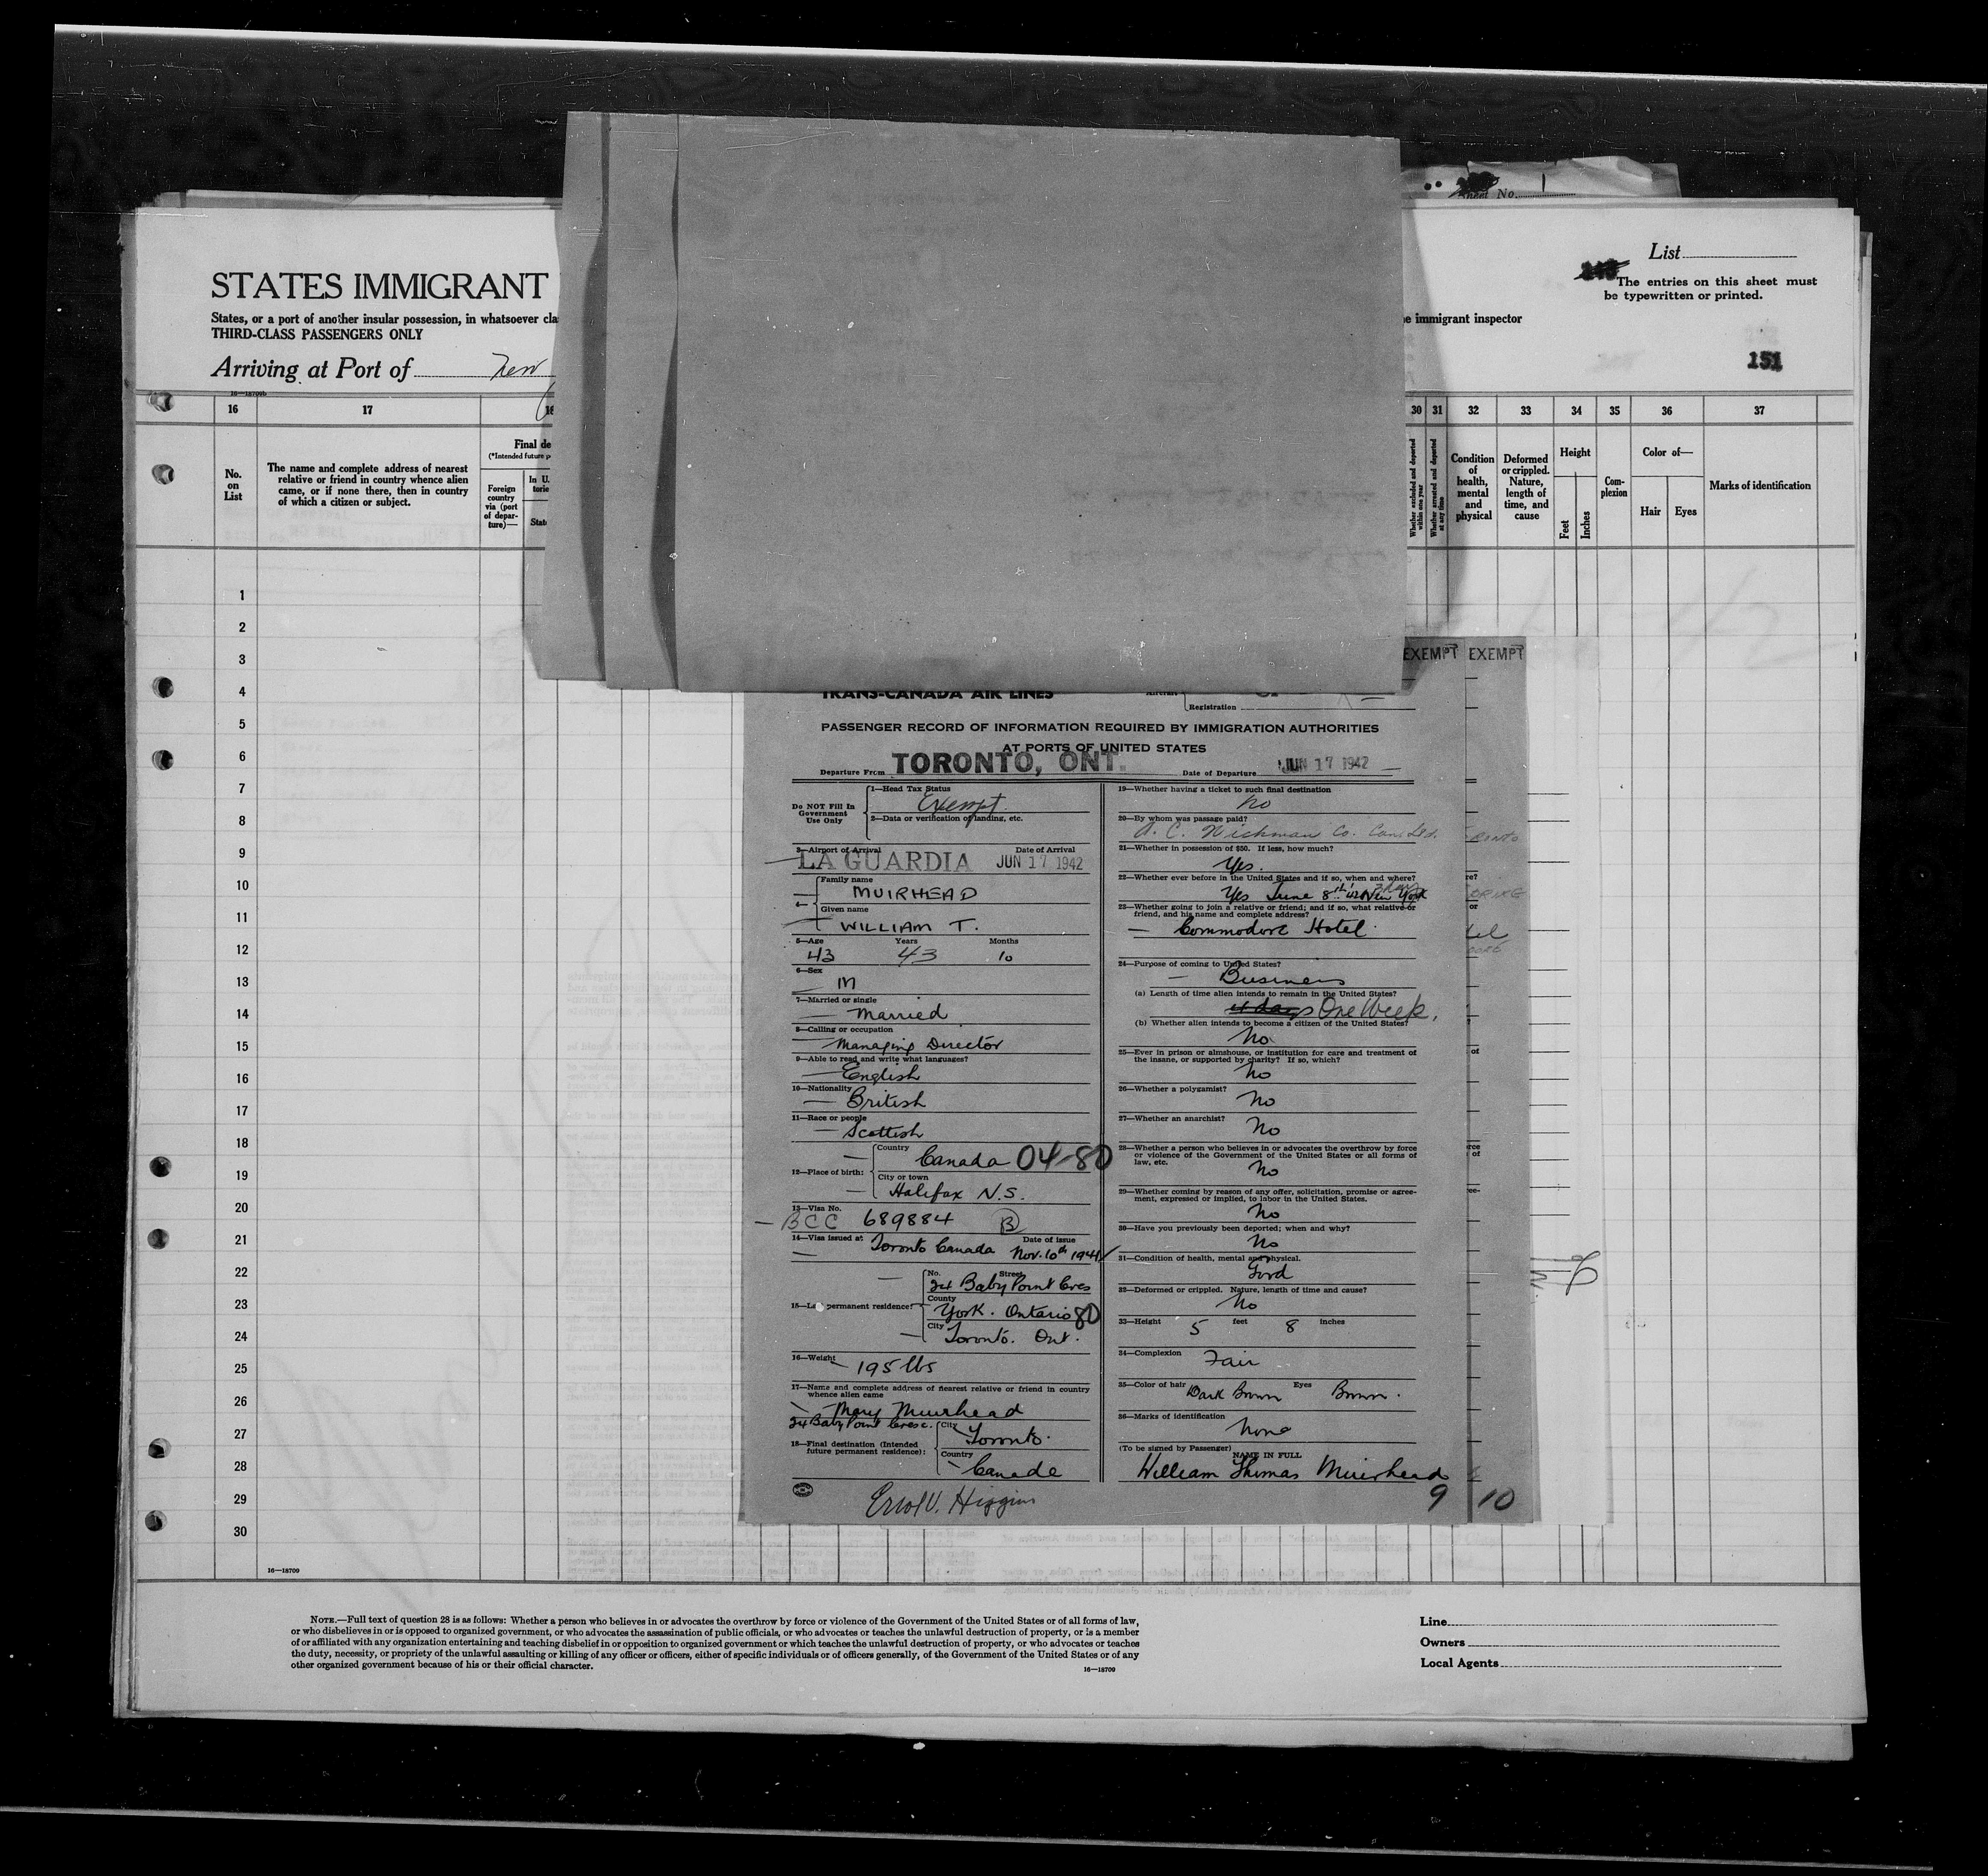 Sheet No. 1
List
The entries on this sheet must
be typewritten or printed.
STATES IMMIGRANT
States, or a port of another insular possession, in whatsoever cla
e immigrant inspector
THIRD-CLASS PASSENGERS ONLY
Arriving at Port of New
151
16 17 30 31 32 33 34 35 36 37
No. on List
The name and complete address of nearest
relative or friend in country whence alien
came, or if none there, then in country
of which a citizen or subject.
Final de
(*Intended future p
Foreign
country
via (port
of depar-
ture)—
In U.
torie
State
Whether excluded and deported within one year
Whether arrested and deported at any time
Condition
of
health,
mental
and
physical
Deformed
or crippled.
Nature,
length of
time, and
cause
Height
Feet
Inches
Com-
plexion
Color of—
Hair
Eyes
Marks of identification
1
2
3
4
5
6
7
8
9
10
11
12
13
14
15
16
17
18
19
20
21
22
23
24
25
26
27
28
29
30
16—18709
EXEMPT EXEMPT
TRANS-CANADA AIR LINES
Aircraft
Registration
PASSENGER RECORD OF INFORMATION REQUIRED BY IMMIGRATION AUTHORITIES
AT PORTS OF UNITED STATES
Departure From TORONTO, ONT. Date of Departure JUN 17 1942
Do NOT Fill In
Government
Use Only
1—Head Tax Status
Exempt
2—Data or verification of landing, etc.
3—Airport of Arrival Date of Arrival
LA GUARDIA JUN 17 1942
4—
Family name
MUIRHEAD
Given name
WILLIAM T.
5—Age Years Months
43 43 10
6—Sex
M
7—Married or single
Married
8—Calling or occupation
Managing Director
9—Able to read and write what languages?
English
10—Nationality
British
11—Race or people
Scottish
12—Place of birth:
Country
Canada 04-80
City or town
Halifax N.S.
13—Visa No.
BCC 689884 B
14—Visa issued at Date of issue
Toronto Canada Nov. 10th 1941
15—Last permanent residence?
No. Street
24 Baby Point Cres
County
York. Ontario 80
City
Toronto. Ont.
16—Weight
195 lbs
17—Name and complete address of nearest relative or friend in country
whence alien came
Mary Muirhead
24 Baby Point Cresc.
18—Final destination (Intended
future permanent residence):
City
Toronto.
Country
Canada
Errol V. Higgins
19—Whether having a ticket to such final destination
No
20—By whom was passage paid?
A. C. Wickman Co. Can. Ltd.
21—Whether in possession of $50. If less, how much?
Yes.
22—Whether ever before in the United States and if so, when and where?
Yes June 8th '42 New York
23—Whether going to join a relative or friend; and if so, what relative or
friend, and his name and complete address?
Commodore Hotel.
24—Purpose of coming to United States?
Business
(a) Length of time alien intends to remain in the United States?
4 days One Week.
(b) Whether alien intends to become a citizen of the United States?
No
25—Ever in prison or almshouse, or institution for care and treatment of
the insane, or supported by charity? If so, which?
No
26—Whether a polygamist?
No
27—Whether an anarchist?
No
28—Whether a person who believes in or advocates the overthrow by force
or violence of the Government of the United States or all forms of
law, etc.
No
29—Whether coming by reason of any offer, solicitation, promise or agree-
ment, expressed or implied, to labor in the United States.
No
30—Have you previously been deported; when and why?
No
31—Condition of health, mental and physical.
Good
32—Deformed or crippled. Nature, length of time and cause?
No
33—Height 5 feet 8 inches
34—Complexion
Fair
35—Color of hair Dark Brown Eyes Brown.
36—Marks of identification
None
(To be signed by Passenger)
NAME IN FULL
William Thomas Muirhead
9 10
NOTE.—Full text of question 28 is as follows: Whether a person who believes in or advocates the overthrow by force or violence of the Government of the United States or of all forms of law,
or who disbelieves in or is opposed to organized government, or who advocates the assassination of public officials, or who advocates or teaches the unlawful destruction of property, or is a member
of or affiliated with any organization entertaining and teaching disbelief in or opposition to organized government or which teaches the unlawful destruction of property, or who advocates or teaches
the duty, necessity, or propriety of the unlawful assaulting or killing of any officer or officers, either of specific individuals or of officers generally, of the Government of the United States or of any
other organized government because of his or their official character.
16—18709
Line
Owners
Local Agents